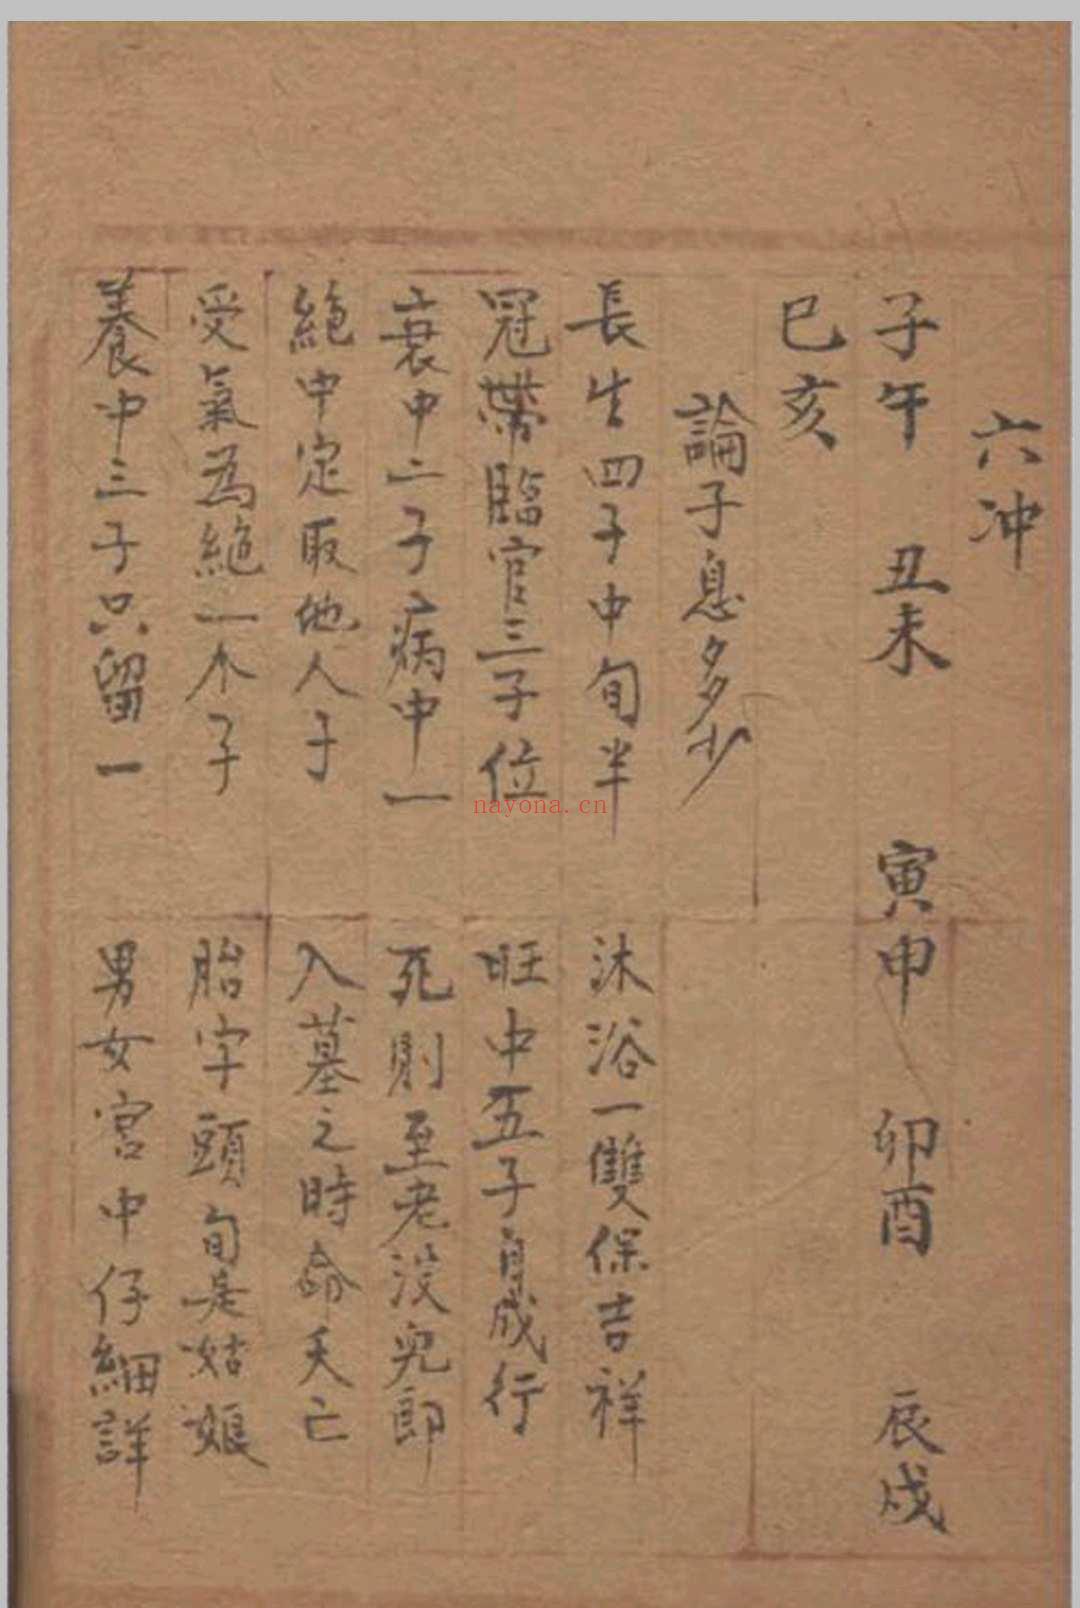 六冲
子午 丑未 寅申 卯酉 辰戌
巳亥
論子息多少
長生四子中旬半 沐浴一雙保吉祥
冠帶臨官三子位 旺中五子自成行
衰中二子病中一 死則至老没兒郎
絶中定取他人子 入墓之時命夭亡
受氣為絶一个子 胎字頭旬是姑娘
養中三子只留一 男女宮中仔細詳
nayona.cn